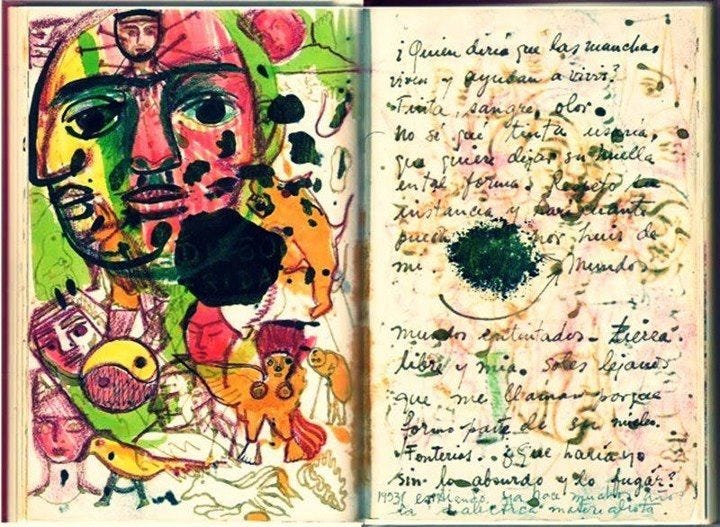 ¿Quien diria que las manchas
viven y ayudan a vivir?
Tinta, sangre, olor.
no sé qué tinta usaria,
que quiere dejar su huella
en tal forma. Respeto su
instancia y haré cuanto
pueda por huir de
mi Mundos
mundos entintados - tierra
libre y mia. Soles lejanos
que me llaman porque
formo parte de su núcleo.
Tonterias. ¿Que haria yo
sin lo absurdo y lo fugáz?
1953 entiendo, ya hace muchos años
la dialectica materialista